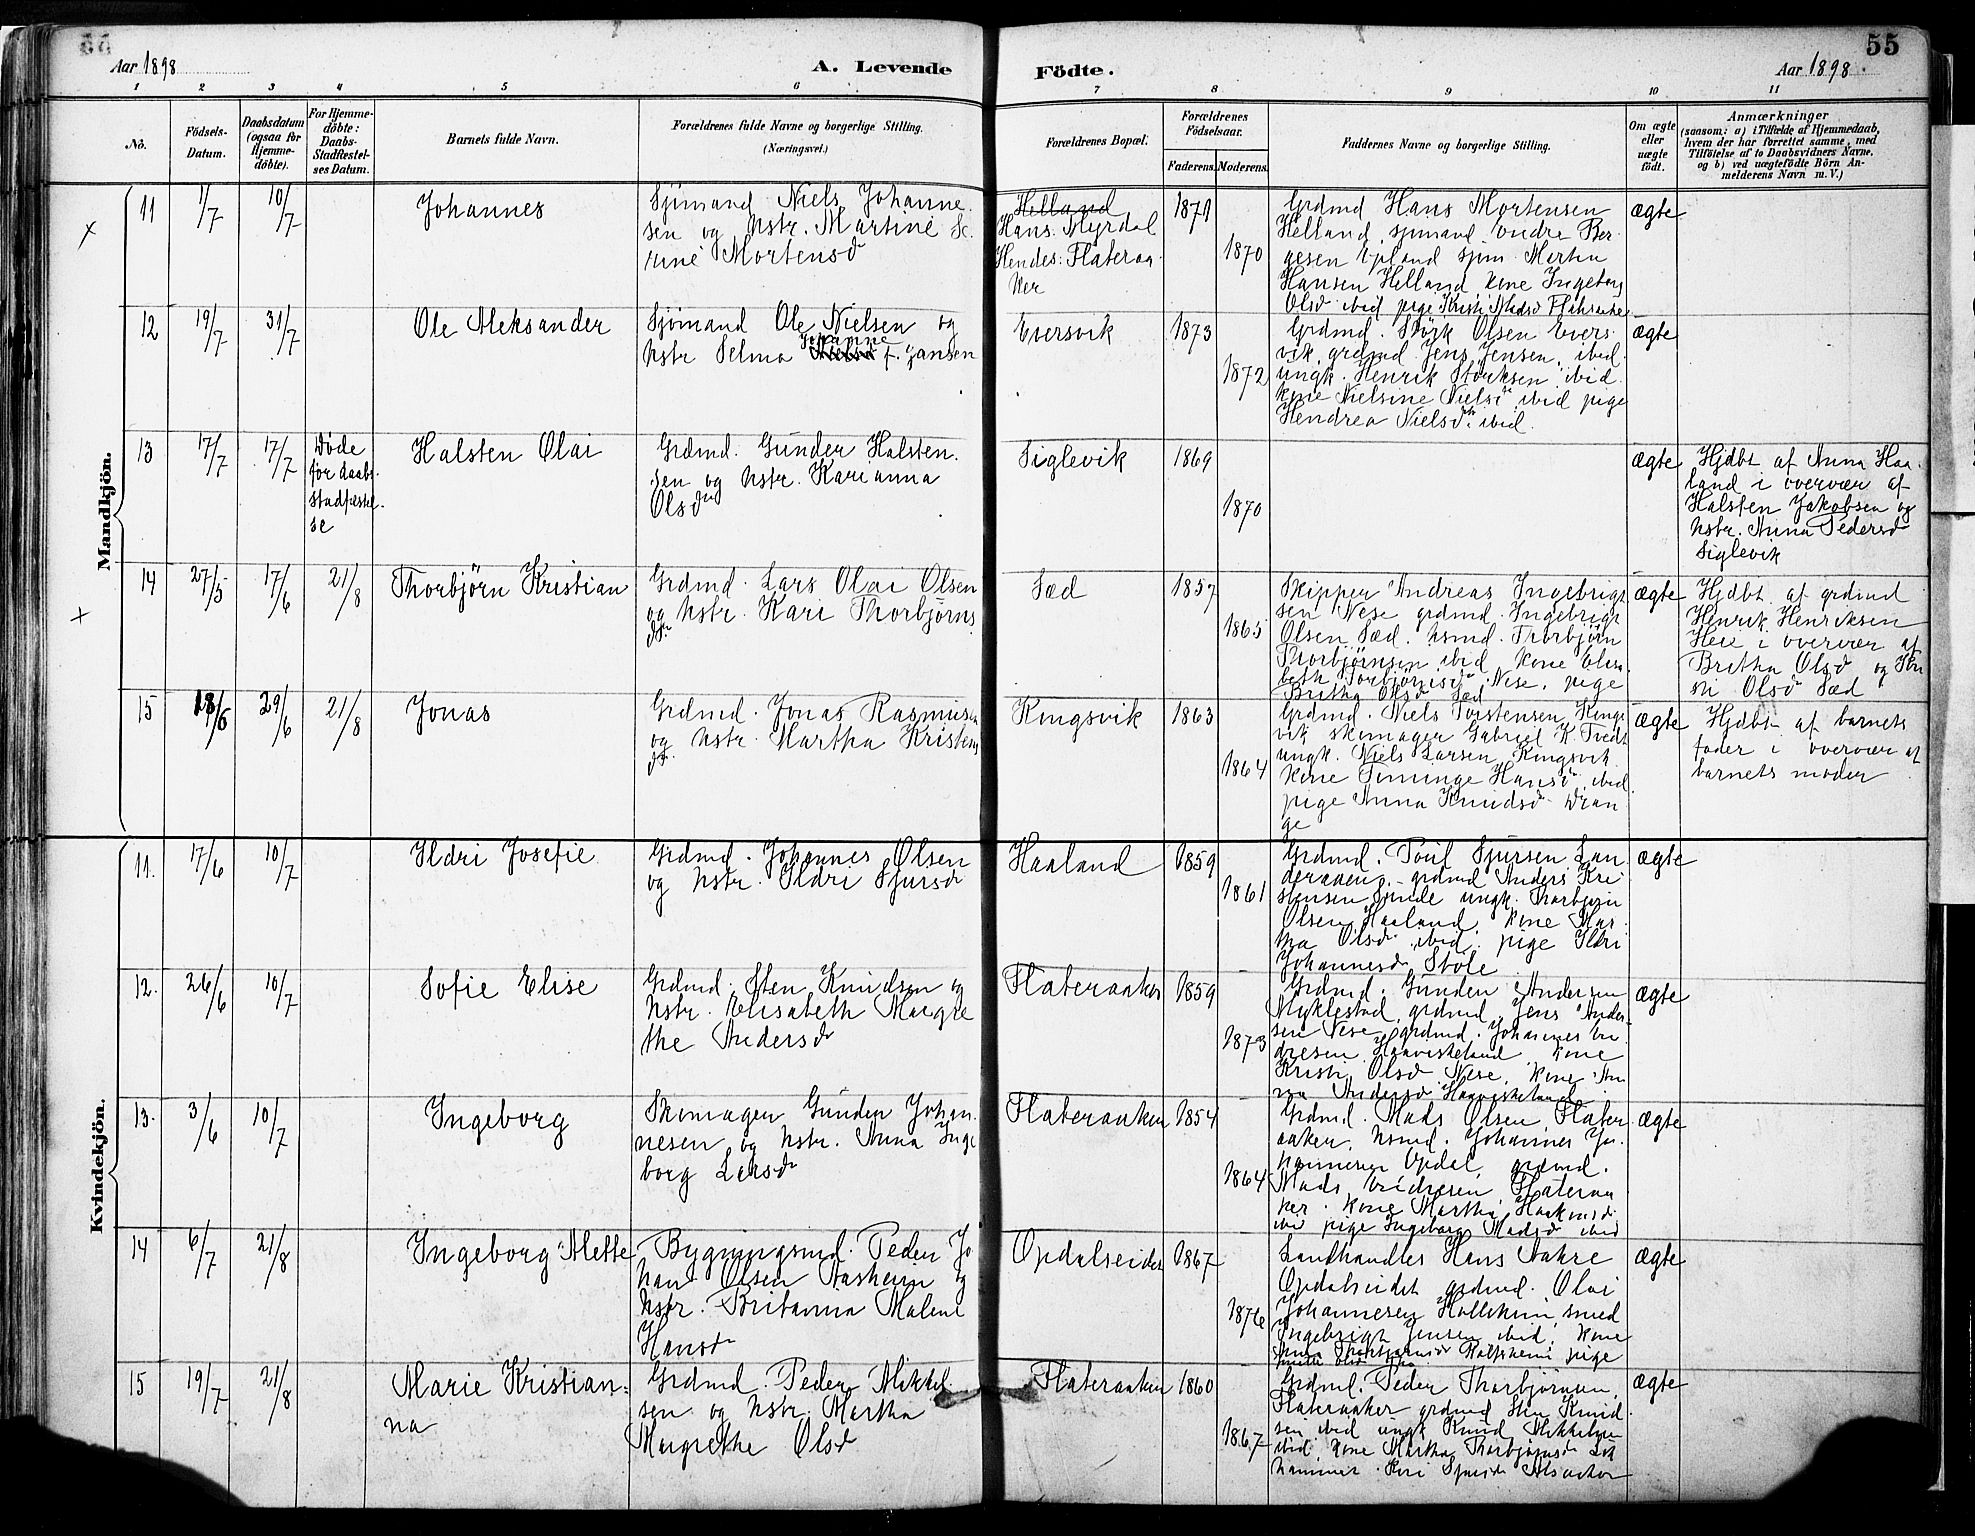 Aar 1898
A. Levende Fødte.
Aar 1898.
55
1 2 3 4 5 6 7 8 9 10 11
No.
Födsels-Datum.
Daabsdatum (ogsaa for Hjemme-döbte).
For Hjemme-döbte: Daabs-Stadfæstel-ses Datum.
Barnets fulde Navn.
Forældrenes fulde Navne og borgerlige Stilling.
(Næringsvei.)
Forældrenes Bopæl.
Forældrenes Födselsaar.
Faderens. Moderens.
Faddernes Navne og borgerlige Stilling.
Om ægte eller uægte født.
Anmærkninger
(saasom: a) i Tilfælde af Hjemmedaab,
hvem der har forrettet samme, med
Tilføielse af to Daabsvidners Navne,
og b) ved uægtefödte Börn An-
melderens Navn m. V.)
Mandkjön.
11 1/7 10/7 Johannes
Sjömand Niels Johanne
sen og hstr. Martine Se
rine Mortensd
Helland
Hans: Myrdal
Hendes: Flateraa
ker
1871
1870
Grdmd Hans Mortensen
Helland, sjömand Endre Ber
gesen Opland sjm. Morten
Hansen Helland kone Ingeborg
Olsd ibid pige Kristi Madsd Flateraaker
ægte
12 19/7 31/7 Ole Aleksander
Sjömand Ole Nielsen og
hstr Selma Johanne f. Jansen
Eversvik
1873
1872
Grdmd. Störk Olsen Evers
vik, grdmd Jens Jensen, ibid.
ungk. Henrik Störksen ibid.
kone Nielsine Nielsd ibid pige
Hendrea Nielsdtr. ibid.
ægte
13 17/7 17/7
Døde
før daabs
stadfæstel
se
Halsten Olai
Grdmd. Gunder Halsten
sen og hstr. Karianna
Olsdtr
Siglevik
1869
1870
ægte
Hjdbt af Anna Haa
land i overvær af
Halsten Jakobsen og
hstr. Anna Pedersd
Siglevik
14 27/5 17/6 21/8 Thorbjörn Kristian
Grdmd. Lars Olai Olsen
og hstr. Kari Thorbjörns
dtr.
Sæd
1857
1865
Skipper Andreas Ingebrigt
sen Nese grdmd. Ingebrigt
Olsen Sæd. hsmd. Thorbjörn
Thorbjörnsen ibid kone Elisa
beth Torbjörnsd Nese, pige
Britha Olsd Sæd
ægte
Hjdbt af grdmd
Henrik Henriksen
Heie i overvær af
Britha Olsd og Kri
sti Olsd Sæd
15 18/6 29/6 21/8 Jonas
Grdmd. Jonas Rasmusen
og hstr. Martha Kristens
dtr.
Kingsvik
1863
1864
Grdmd. Niels Torstensen Kings
vik skomager Gabriel K Tvedt
ungk. Niels Larsen Kingsvik
kone Hansd ibid
pige Anna Knudsd Dran
ge
ægte
Hjdbt af barnets
fader i overvær af
barnets moder
Kvindekjön.
11. 17/6 10/7 Ildri Josefie
Grdmd. Johannes Olsen
og hstr. Ildri Sjursd
Haaland
1859
1861
Grdmd. Poul Sjursen Lan
deraaen, grdmd Anders Kri
stensen ungk. Thorbjörn
Olsen Haaland, kone Mar
tha Olsd ibid. pige Ildri
Johannesd Støle
ægte
12. 26/6 10/7 Sofie Elise
Grdmd. Sten Knudsen og
hstr. Elisabeth Margre
the Andersd
Flateraaker
1859
1873
Grdmd. Gunder Andersen
Myklestad, grdmd. Jens Ander
sen Nese grdmd. Johannes En
dresen kone
Kristi Olsd Nese, kone An
na Andersd
ægte
13. 3/6 10/7 Ingeborg
Skomager Gunder Johan
nesen og hstr. Anna Inge
borg Larsd
Flateraaker
1854
1864
Grdmd. Mads Olsen Flater
aaker, hsmd. Johannes Jo
hannesen Opdal, grdmd.
Mads Endresen, Flateraa
ker. kone Martha Haakonsd
ibid pige Ingeborg Madsd ibid
ægte
14 6/7 21/8 Ingeborg Mette
Bygningsmd. Peder Jo
han Olsen Aasheim og
hstr. Britannia Malene
Hansd
Opdalseidet
1867
1876
Landhandler Hans Aakre
Opdalseidet grdmd. Olai
Johannesen smed
Ingebrigt Jensen ibid. kone
pige
ægte
15 19/7 21/8 Marie Kristian-
na
Grdmd. Peder Mikkel
sen og hstr. Martha
Margrethe Olsd
Flateraaker
1860
1867
Grdmd. Peder Thorbjörnsen,
Flateraaker grdmd Sten Knud
sen ibid ungk Knud Mikkelsen
ibid kone Martha Thorbjörnsd
ægte